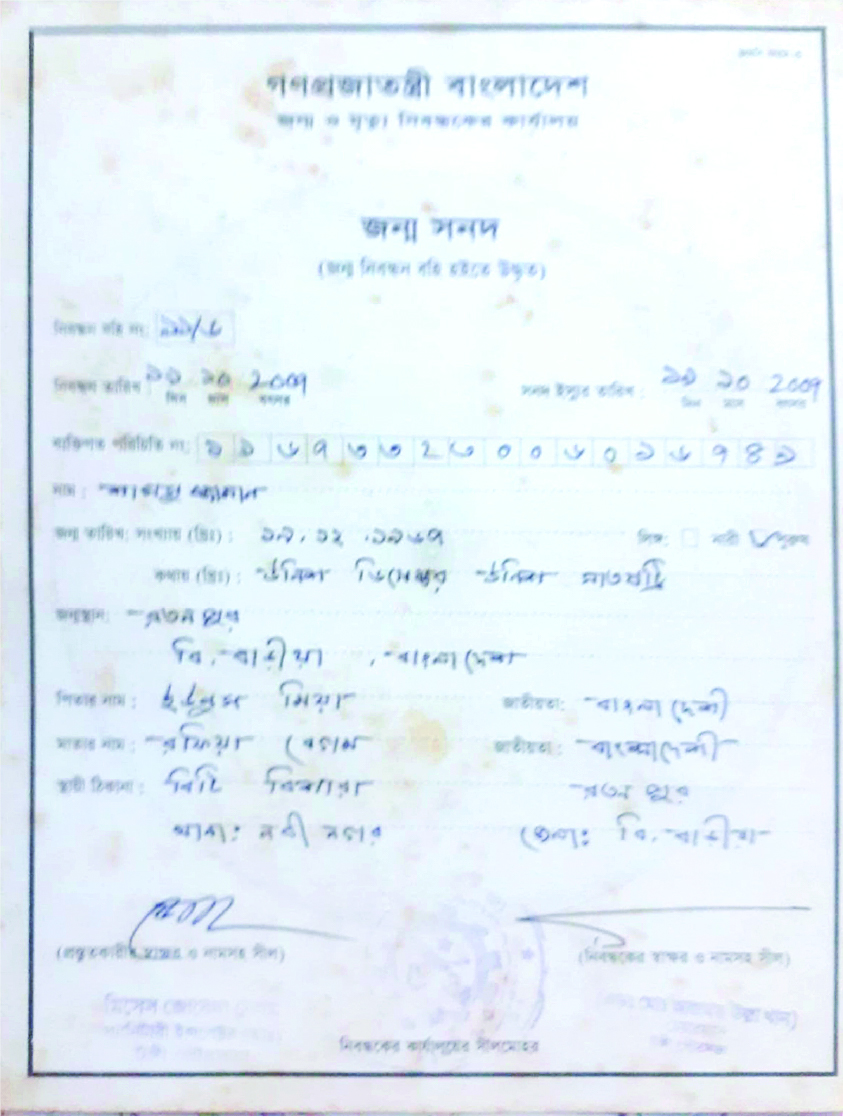 গণপ্রজাতন্ত্রী বাংলাদেশ
জন্ম ও মৃত্যু নিবন্ধকের কার্যালয়
জন্ম সনদ
(জন্ম নিবন্ধন বহি হইতে উদ্ধৃত)
নিবন্ধন বহি নং: ১১/৬
নিবন্ধন তারিখ: ১১ ১০ 2009 সনদ ইস্যুর তারিখ: ১১ ১০ 2009
দিন মাস বৎসর দিন মাস বৎসর
ব্যক্তিগত পরিচিতি নং:
নাম:
জন্ম তারিখ: সংখ্যায় (খ্রিঃ): ১৯.১২.১৯৬৭ লিঙ্গ: নারী পুরুষ
কথায় (খ্রিঃ): উনিশ ডিসেম্বর উনিশ সাতষট্টি
জন্মস্থান: রতনপুর
বি.বাড়ীয়া, বাংলাদেশ
পিতার নাম: ইউনুস মিয়া জাতীয়তা: বাংলাদেশী
মাতার নাম: রফিয়া বেগম জাতীয়তা: বাংলাদেশী
স্থায়ী ঠিকানা: ভিটি বিশারা রতনপুর
থানা: নবীনগর জেলা: বি.বাড়ীয়া
(প্রস্তুতকারীর স্বাক্ষর ও নামসহ সীল) (নিবন্ধকের স্বাক্ষর ও নামসহ সীল)
মিসেস
নিবন্ধকের কার্যালয়ের সীলমোহর